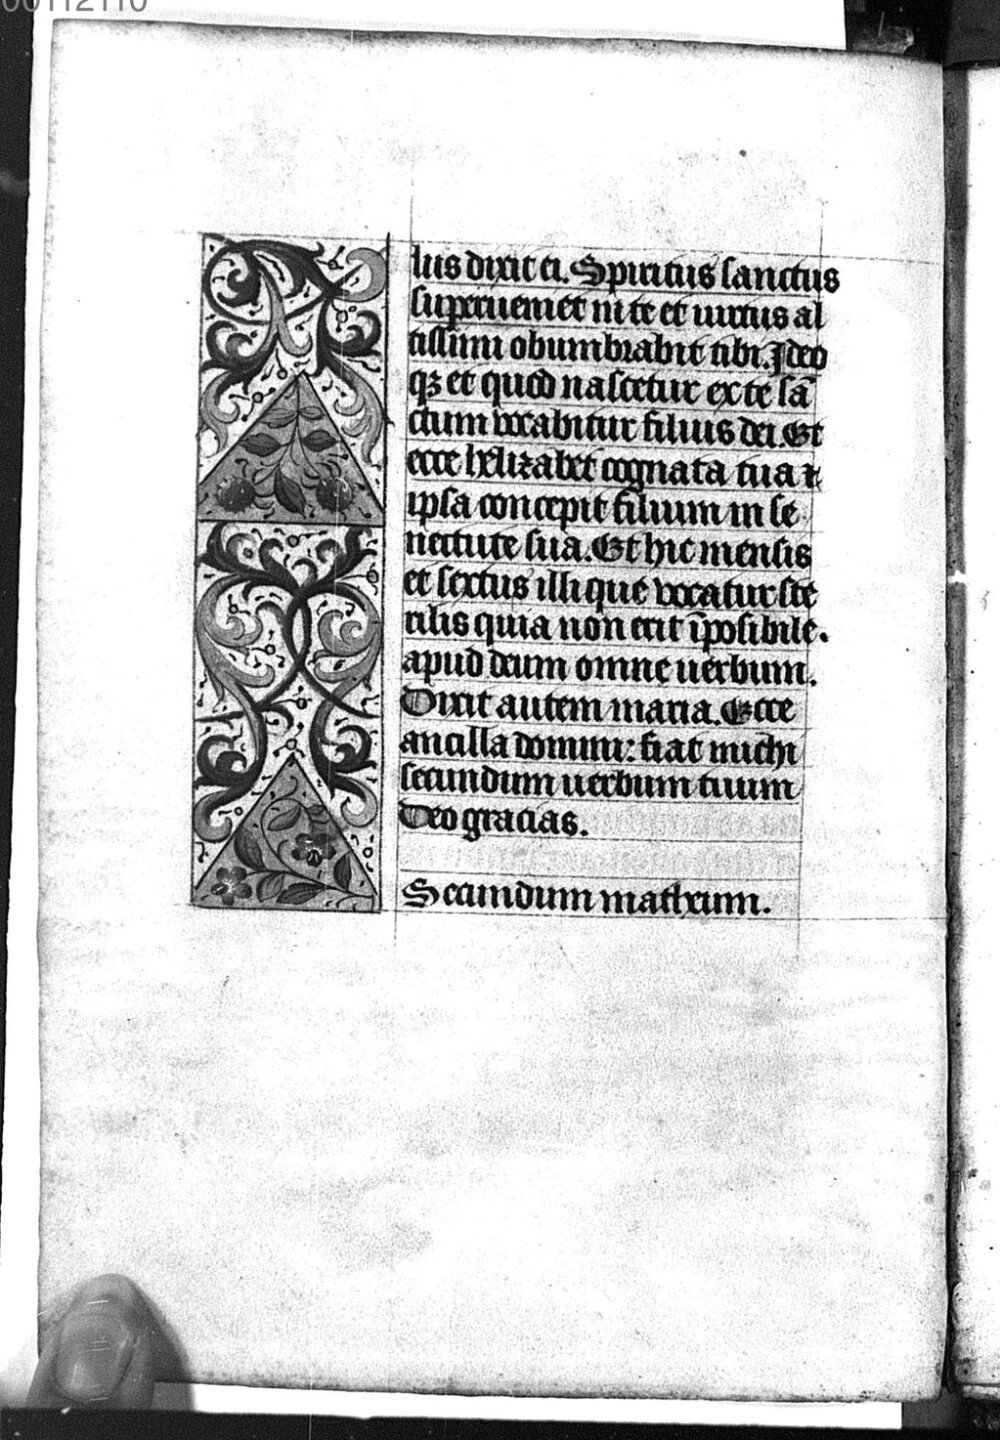 00112110
lus dixit ei. Spiritus sanctus
superueniet in te et uirtus al
tissimi obumbrabit tibi. Ideo
qꝫ et quod nascetur ex te sā
ctum vocabitur filius dei. Et
ecce helizabet cognata tua ꝛ
ipsa concepit filium in se
nectute sua. Et hic mensis
et sextus illi que vocatur ste
rilis quia non erit īposibile.
apud deum omne uerbum.
Dixit autem maria. Ecce
ancilla domini: fiat michi
secundum uerbum tuum
Deo gracias.
Secundum matheum.